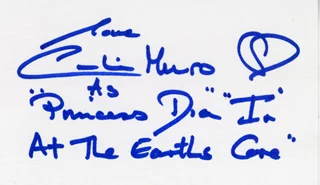 Love
Caroline Munro
As
"Princess Dia" "In"
At The Earths Core"